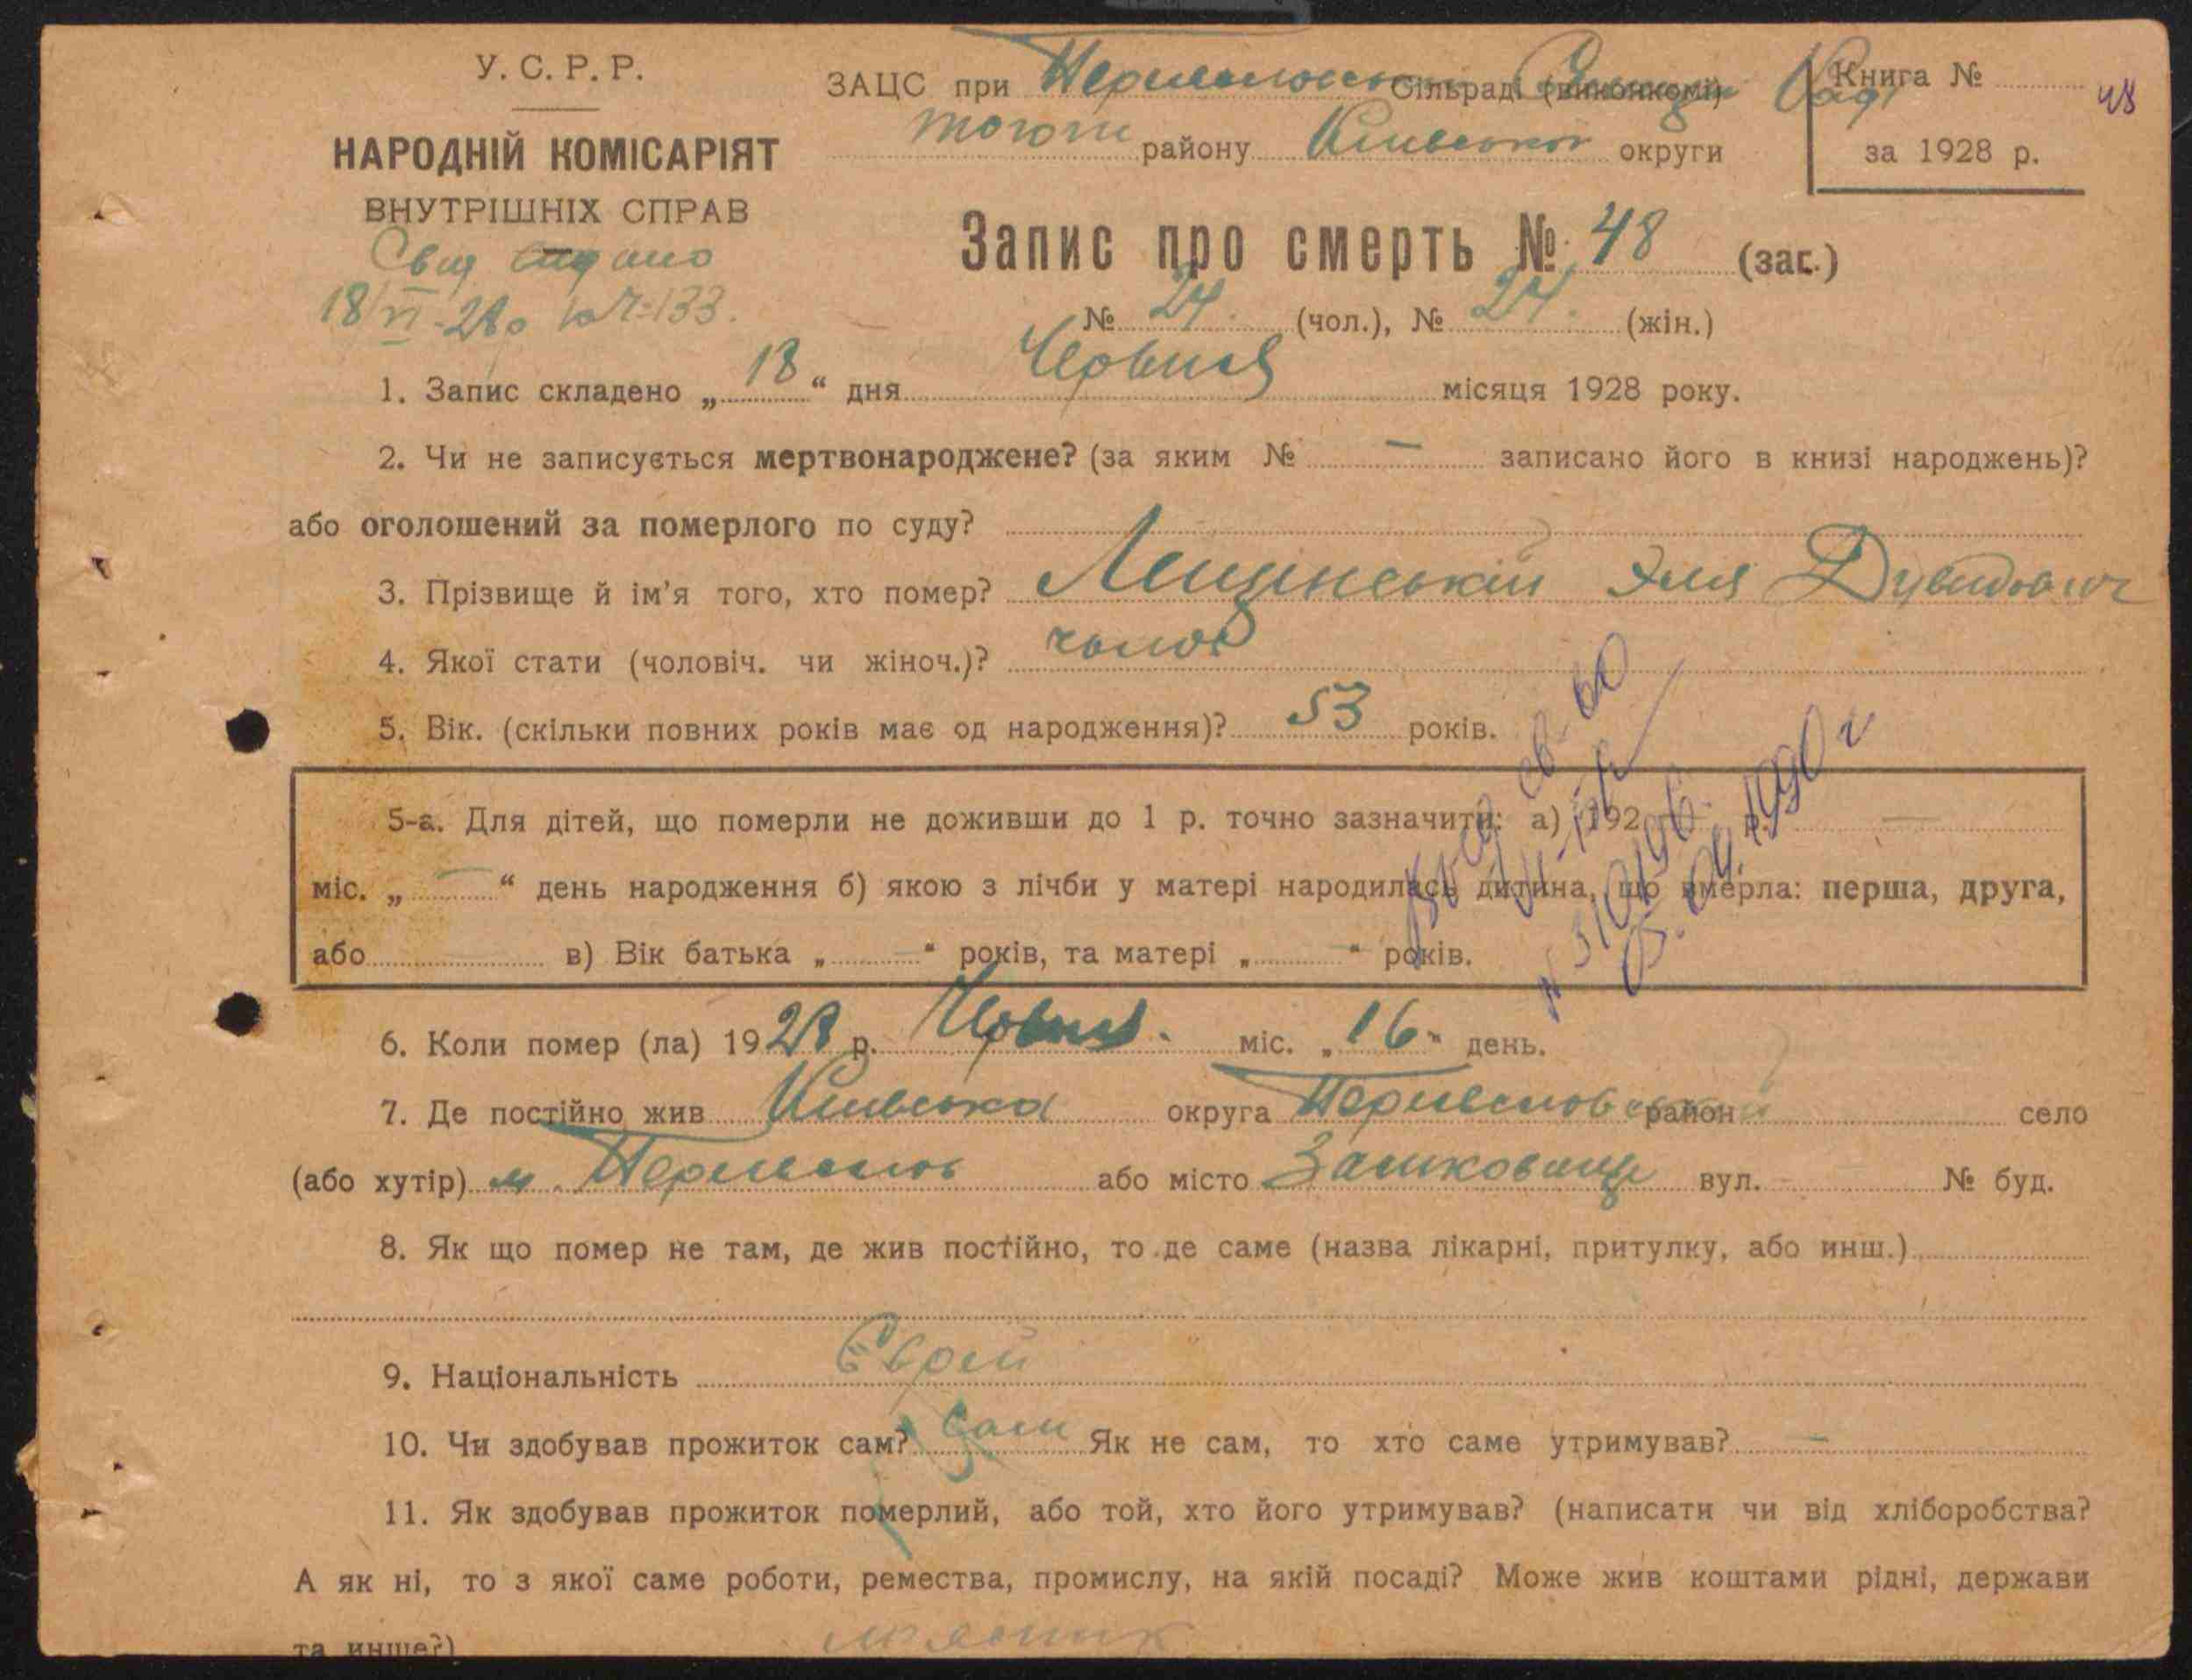 У. С. Р. Р.
НАРОДНІЙ КОМІСАРІЯТ
ВНУТРІШНІХ СПРАВ
Свид видано
18/VI-28р № 133.
ЗАЦС при Сільраді (виконкомі)
того ж району Київської округи
Книга №
за 1928 р.
48
Запис про смерть № 48 (заг.)
№ 24. (чол.), № 24. (жін.)
1. Запис складено „18“ дня Червня місяця 1928 року.
2. Чи не записується мертвонароджене? (за яким № — записано його в книзі народжень)?
або оголошений за померлого по суду?
3. Прізвище й ім'я того, хто помер? Лещінський Эля Дувидович
4. Якої стати (чоловіч. чи жіноч.)? чолов
5. Вік. (скільки повних років має од народження)? 53 років.
5-а. Для дітей, що померли не доживши до 1 р. точно зазначити: а) 192 р. —
міс. „ — “ день народження б) якою з лічби у матері народилась дитина, що вмерла: перша, друга,
або в) Вік батька „ — “ років, та матері „ “ років.
1990 г
6. Коли помер (ла) 1928 р. Червня. міс. „16“ день.
7. Де постійно жив Київська округа район село
(або хутір) м. або місто вул. № буд.
8. Як що помер не там, де жив постійно, то де саме (назва лікарні, притулку, або инш.)
9. Національність Єврей
10. Чи здобував прожиток сам? Сам Як не сам, то хто саме утримував? —
11. Як здобував прожиток померлий, або той, хто його утримував? (написати чи від хліборобства?
А як ні, то з якої саме роботи, ремества, промислу, на якій посаді? Може жив коштами рідні, держави
та инше?) мясник